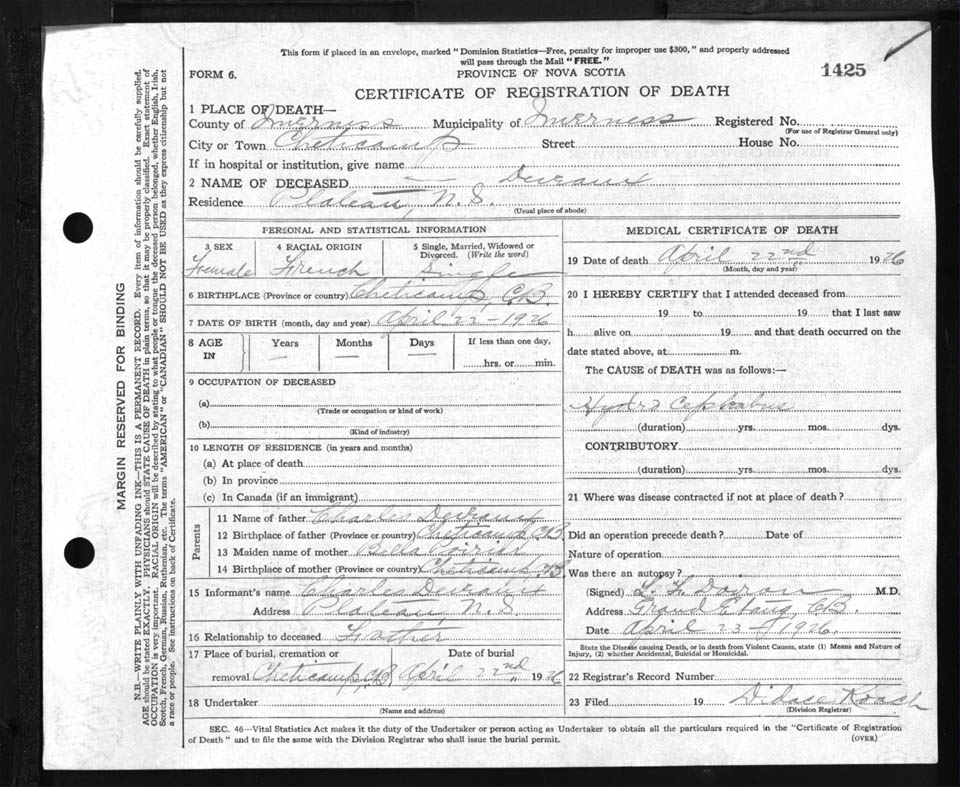 This form if placed in an envelope, marked "Dominion Statistics—Free, penalty for improper use $300," and properly addressed
will pass through the Mail "FREE."
FORM 6.
PROVINCE OF NOVA SCOTIA
1425
CERTIFICATE OF REGISTRATION OF DEATH
MARGIN RESERVED FOR BINDING
N.B.—WRITE PLAINLY WITH UNFADING INK—THIS IS A PERMANENT RECORD. Every item of information should be carefully supplied.
AGE should be stated EXACTLY. PHYSICIANS should STATE CAUSE OF DEATH in plain terms, so that it may be properly classified. Exact statement of
OCCUPATION is very important. RACIAL ORIGIN will be described by stating to what people or tongue the deceased person belonged, whether English, Irish,
Scotch, French, German, Russian, Ruthenian, etc. The terms "AMERICAN" or "CANADIAN" SHOULD NOT BE USED as they express citizenship but not
a race or people. See instructions on back of Certificate.
1 PLACE OF DEATH—
County of Inverness Municipality of Inverness Registered No.
(For use of Registrar General only)
City or Town Cheticamp Street House No.
If in hospital or institution, give name
2 NAME OF DECEASED — Deveaux
Residence Plateau, N.S.
(Usual place of abode)
PERSONAL AND STATISTICAL INFORMATION
3 SEX
Female
4 RACIAL ORIGIN
French
5 Single, Married, Widowed or
Divorced. (Write the word)
Single
6 BIRTHPLACE (Province or country) Cheticamp, C.B.
7 DATE OF BIRTH (month, day and year) April 22 - 1926
8 AGE
IN
Years
—
Months
—
Days
—
If less than one day,
hrs. or min.
9 OCCUPATION OF DECEASED
(a)
(Trade or occupation or kind of work)
(b)
(Kind of industry)
10 LENGTH OF RESIDENCE (in years and months)
(a) At place of death
(b) In province
(c) In Canada (if an immigrant)
Parents
11 Name of father Charles Deveaux
12 Birthplace of father (Province or country) Cheticamp CB
13 Maiden name of mother Bella Poirier
14 Birthplace of mother (Province or country) Cheticamp CB
15 Informant's name Charles Deveaux
Address Plateau, N.S
16 Relationship to deceased Father
17 Place of burial, cremation or
removal Cheticamp, CB
Date of burial
April 22nd 1926
18 Undertaker
(Name and address)
MEDICAL CERTIFICATE OF DEATH
19 Date of death April 22nd 1926
(Month, day and year)
20 I HEREBY CERTIFY that I attended deceased from
19 to 19 that I last saw
h alive on 19 and that death occurred on the
date stated above, at m.
The CAUSE of DEATH was as follows:—
Hydro Cephalus
(duration) yrs. mos. dys.
CONTRIBUTORY
(duration) yrs. mos. dys.
21 Where was disease contracted if not at place of death?
Did an operation precede death? Date of
Nature of operation
Was there an autopsy?
(Signed) Doiron M.D.
Address Grand Etang CB.
Date April 23 - 1926.
State the Disease causing Death, or in death from Violent Causes, state (1) Means and Nature of
Injury, (2) whether Accidental, Suicidal or Homicidal.
22 Registrar's Record Number
23 Filed 19
(Division Registrar)
SEC. 46—Vital Statistics Act makes it the duty of the Undertaker or person acting as Undertaker to obtain all the particulars required in the "Certificate of Registration
of Death" and to file the same with the Division Registrar who shall issue the burial permit.
(OVER)